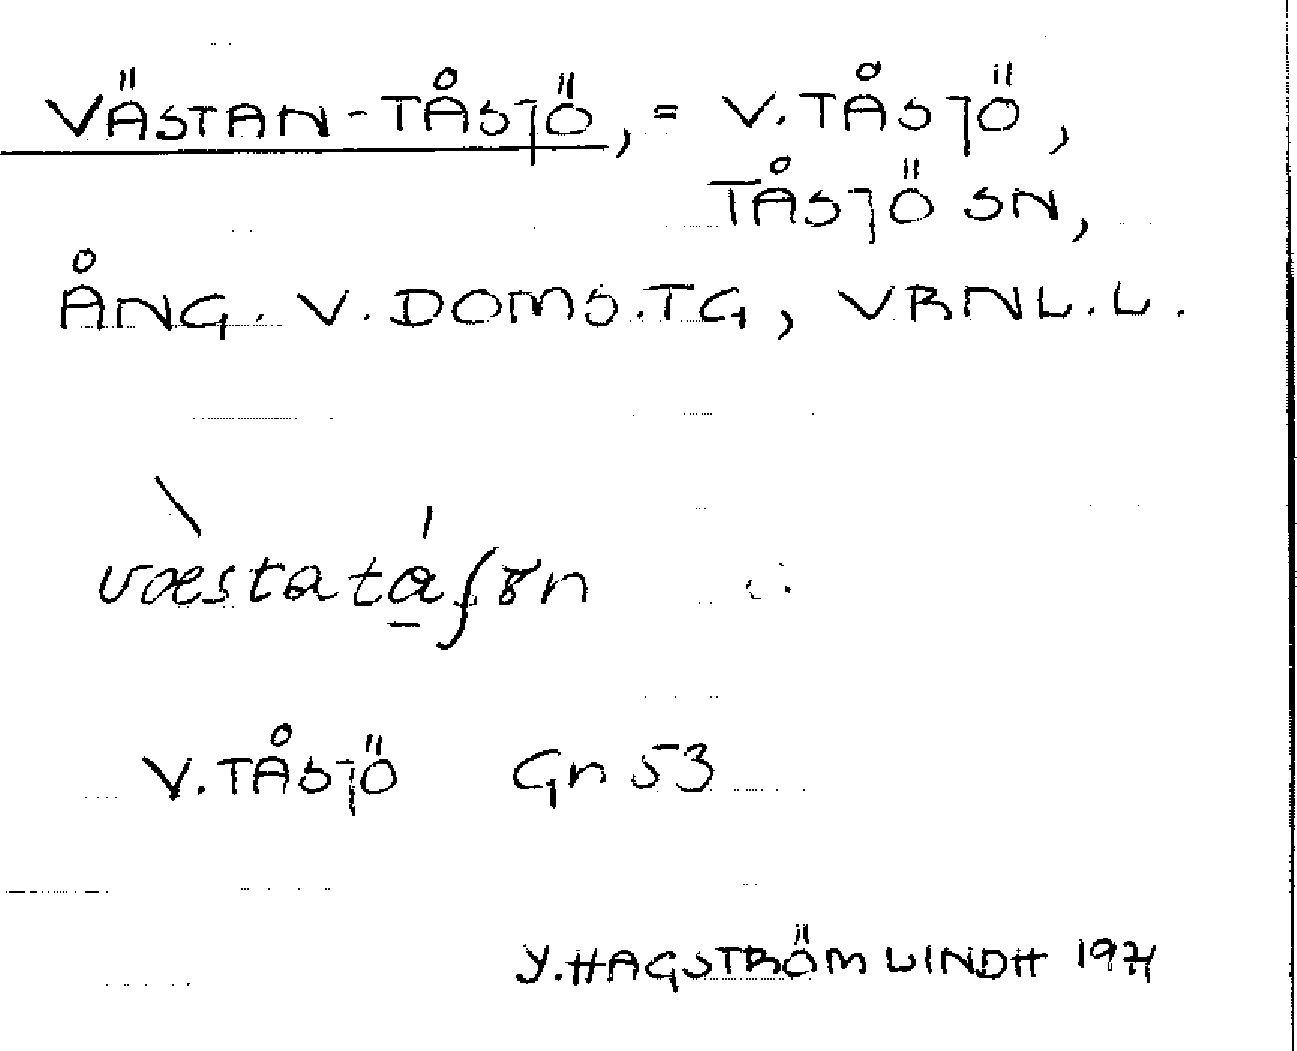 VÄSTAN-TÅSJÖ, = V. TÅSJÖ,
TÅSJÖ SN,
ÅNG. V. DOMS. TG, VRNL. L.
V. TÅSJÖ Gn 53
Y. HAGSTRÖM LINDH 1971